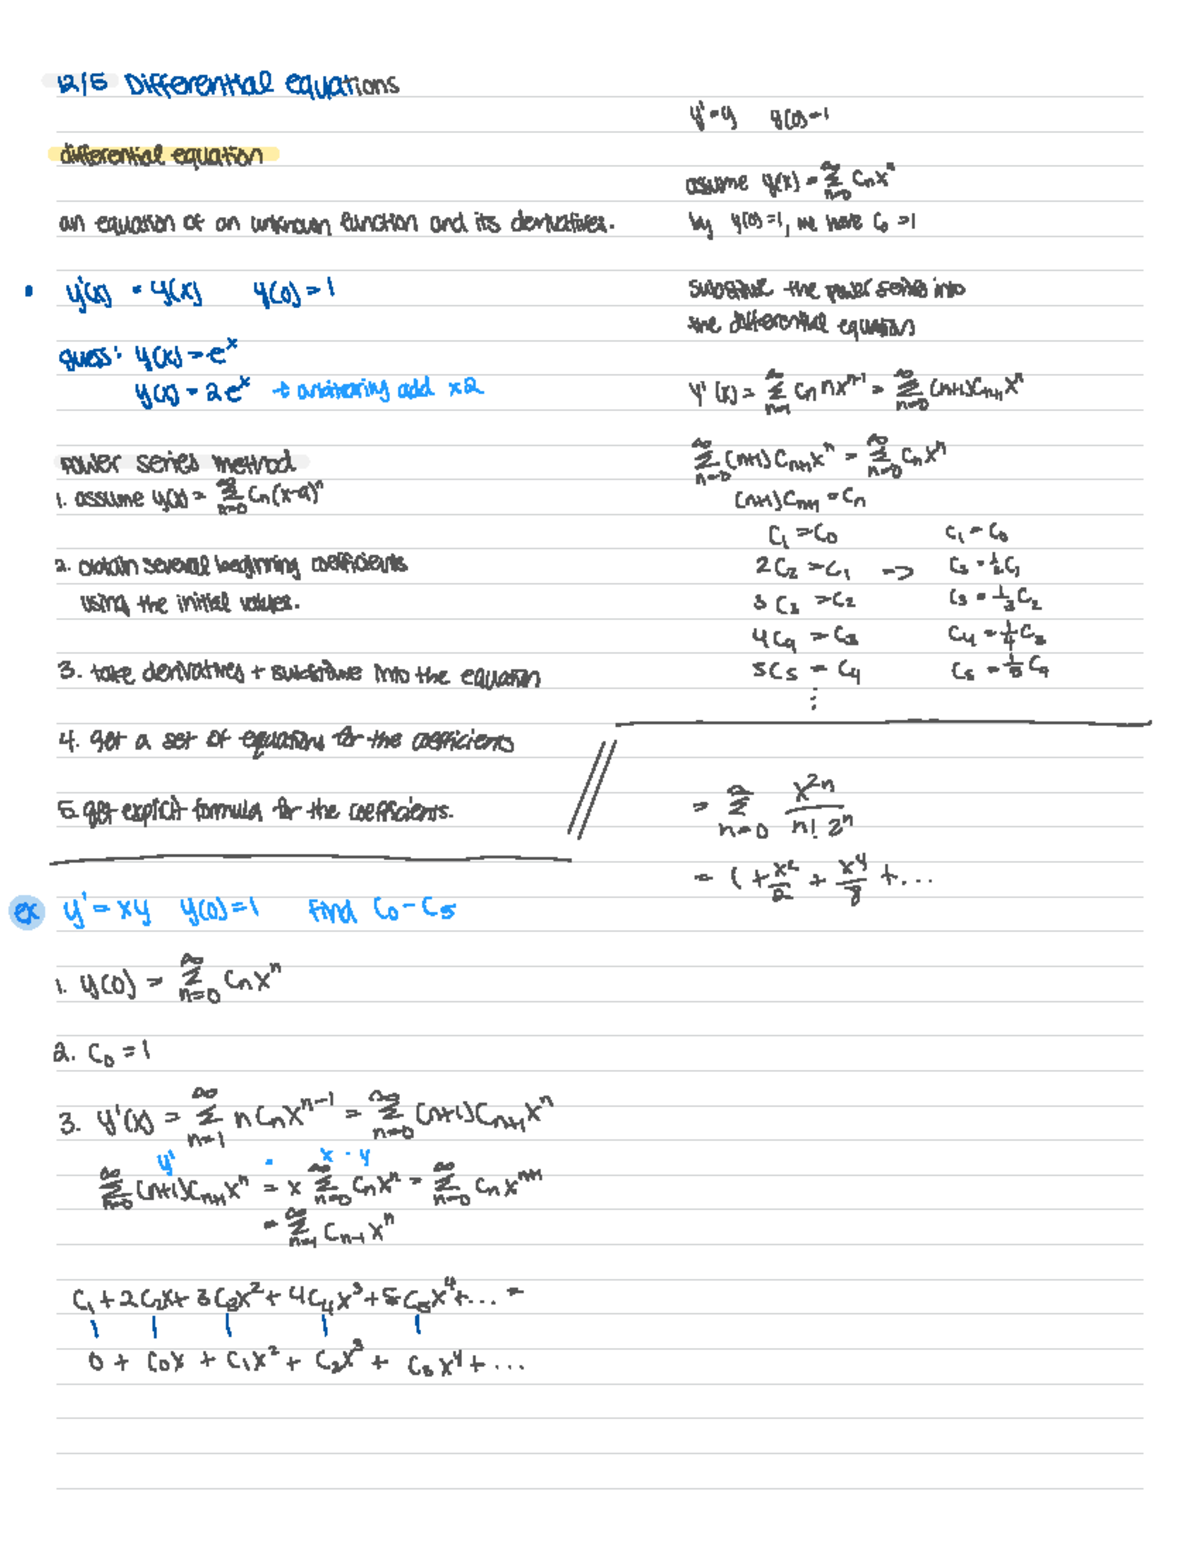 12/5 Differential equations
differential equation
an equation of an unknown function and its derivatives.
• y'(x) = y(x) y(0) = 1
guess: y(x) = e^x
y(x) = 2e^x → arbitrarily add x2
Power series method
1. assume y(x) = ∑_{n=0}^∞ Cn(x-a)^n
2. obtain several beginning coefficients
using the initial values.
3. take derivatives + substitute into the equation
4. get a set of equations for the coefficients
5. get explicit formula for the coefficients.
ex y' = xy y(0) = 1 Find C0 - C5
1. y(0) = ∑_{n=0}^∞ Cn x^n
2. C0 = 1
3. y'(x) = ∑_{n=1}^∞ n Cn x^{n-1} = ∑_{n=0}^∞ (n+1)C_{n+1} x^n
y' = x · y
∑_{n=0}^∞ (n+1)C_{n+1} x^n = x ∑_{n=0}^∞ Cn x^n = ∑_{n=0}^∞ Cn x^{n+1}
= ∑_{n=1}^∞ C_{n-1} x^n
C1 + 2C2x + 3C3x^2 + 4C4x^3 + 5C5x^4 + ... =
0 + C0x + C1x^2 + C2x^3 + C3x^4 + ...
y' = y y(0) = 1
assume y(x) = ∑_{n=0}^∞ Cn x^n
by y(0) = 1, we have C0 = 1
substitute the power series into
the differential equation
y'(x) = ∑_{n=1}^∞ Cn n x^{n-1} = ∑_{n=0}^∞ (n+1)C_{n+1} x^n
∑_{n=0}^∞ (n+1) C_{n+1} x^n = ∑_{n=0}^∞ Cn x^n
(n+1)C_{n+1} = Cn
C1 = C0 C1 = C0
2C2 = C1 -> C2 = 1/2 C1
3C3 = C2 C3 = 1/3 C2
4C4 = C3 C4 = 1/4 C3
5C5 = C4 C5 = 1/5 C4
⋮
= ∑_{n=0}^∞ x^{2n} / n! 2^n
= 1 + x^2/2 + x^4/8 + ...